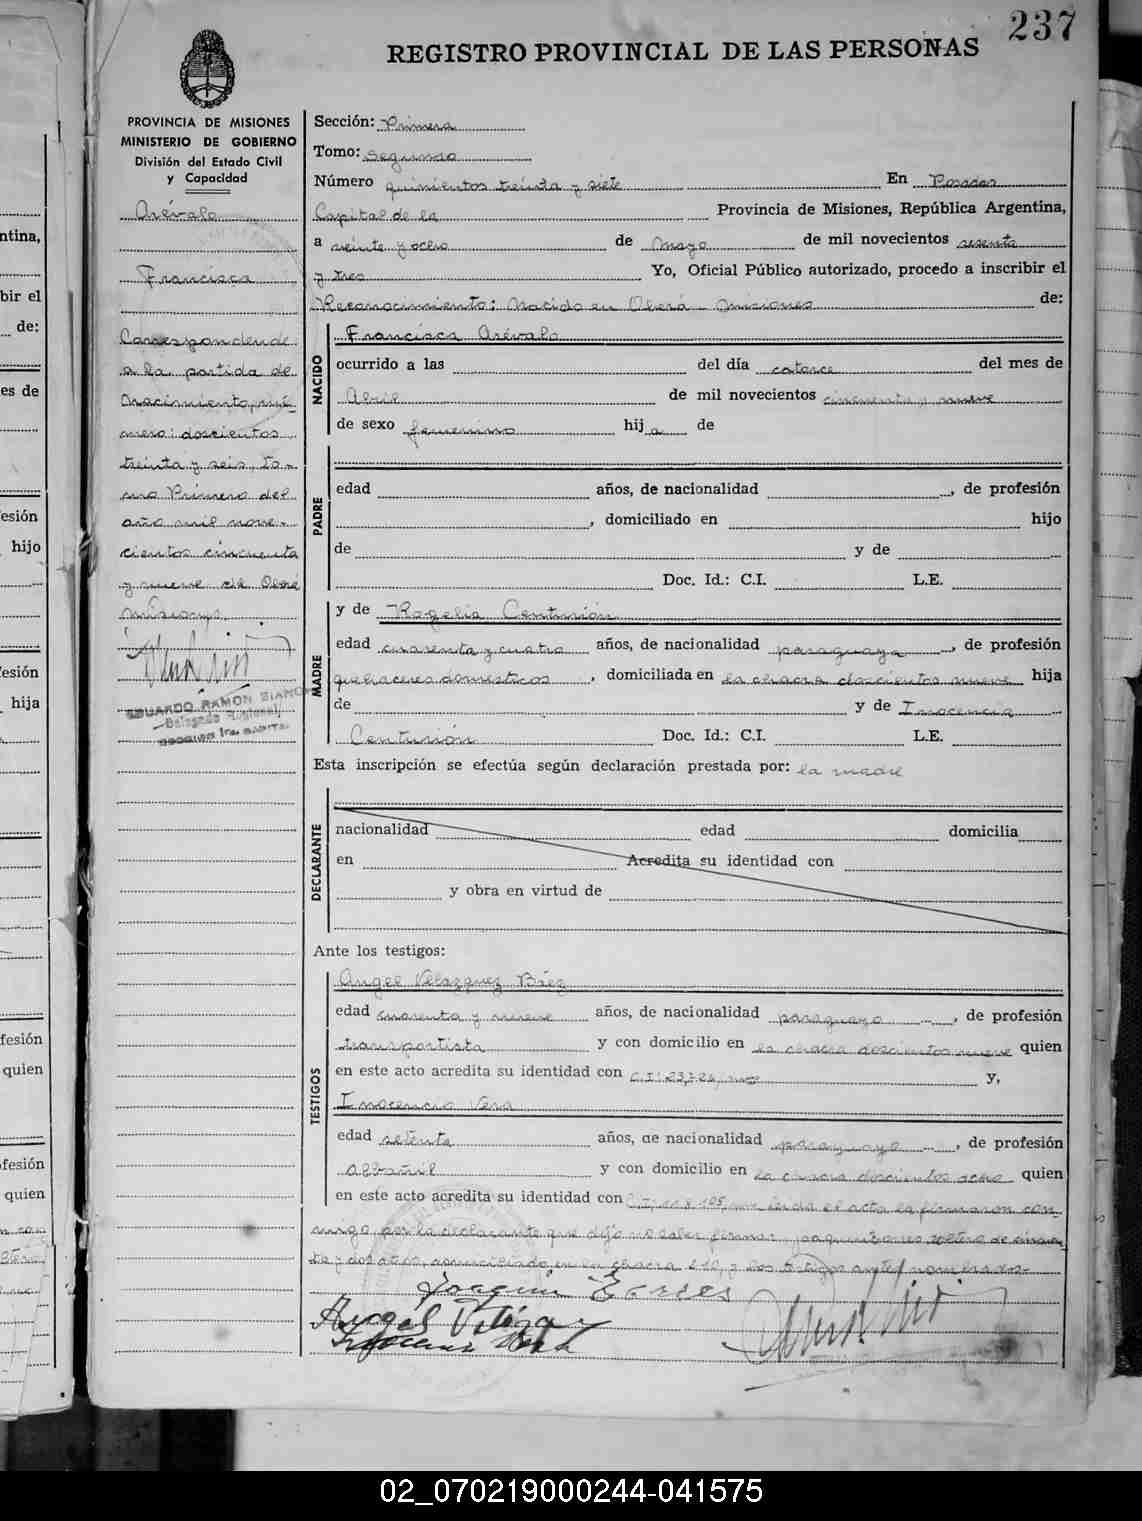 237
REGISTRO PROVINCIAL DE LAS PERSONAS
PROVINCIA DE MISIONES
MINISTERIO DE GOBIERNO
División del Estado Civil
y Capacidad
Arévalo
Francisca
Correspondende
a la partida de
Nacimiento, nú-
mero: doscientos
treinta y seis, To-
mo Primero del
año mil nove-
cientos cincuenta
y nueve de Oberá
Misiones.
EDUARDO RAMON
Delegado Regional
Sección: Primera
Tomo: Segundo
Número quinientos treinta y siete En Posadas
Capital de la Provincia de Misiones, República Argentina,
a veinte y ocho de Mayo de mil novecientos sesenta
y tres Yo, Oficial Público autorizado, procedo a inscribir el
Reconocimiento: Nacido en Oberá Misiones de:
NACIDO
Francisca Arévalo
ocurrido a las del día catorce del mes de
Abril de mil novecientos cincuenta y nueve
de sexo femenino hija de
PADRE
edad años, de nacionalidad , de profesión
, domiciliado en hijo
de y de
Doc. Id.: C.I. L.E.
MADRE
y de Rogelia Centurión
edad cuarenta y cuatro años, de nacionalidad paraguaya , de profesión
quehaceres domésticos , domiciliada en la chacra doscientos nueve hija
de y de Inocencia
Centurión Doc. Id.: C.I. L.E.
Esta inscripción se efectúa según declaración prestada por: la madre
DECLARANTE
nacionalidad edad domicilia
en Acredita su identidad con
y obra en virtud de
Ante los testigos:
TESTIGOS
Angel Velazquez Báez
edad cuarenta y nueve años, de nacionalidad paraguayo , de profesión
transportista y con domicilio en la chacra doscientos nueve quien
en este acto acredita su identidad con C.I: y,
Inocencio Vera
edad setenta años, de nacionalidad paraguayo , de profesión
Albañil y con domicilio en la chacra doscientos ocho quien
en este acto acredita su identidad con C.I: leida el acta la firmaron con-
migo, por la declarante que dijo no saber firmar, soltero de cincuen-
ta y dos años, domiciliado en la chacra 210, y los testigos antes nombrados-
Joaquin
Angel
02_070219000244-041575